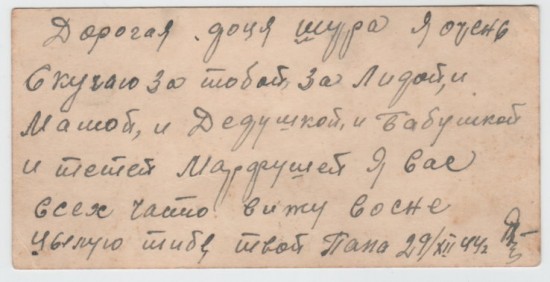 Дорогая доця шура я очень
Скучаю за тобой, за Лидой, и
Машой, и Дедушкой, и Бабушкой
и тетей Марфушей Я вас
всех часто вижу восне
Цылую тибе твой Папа 29/XII 44г